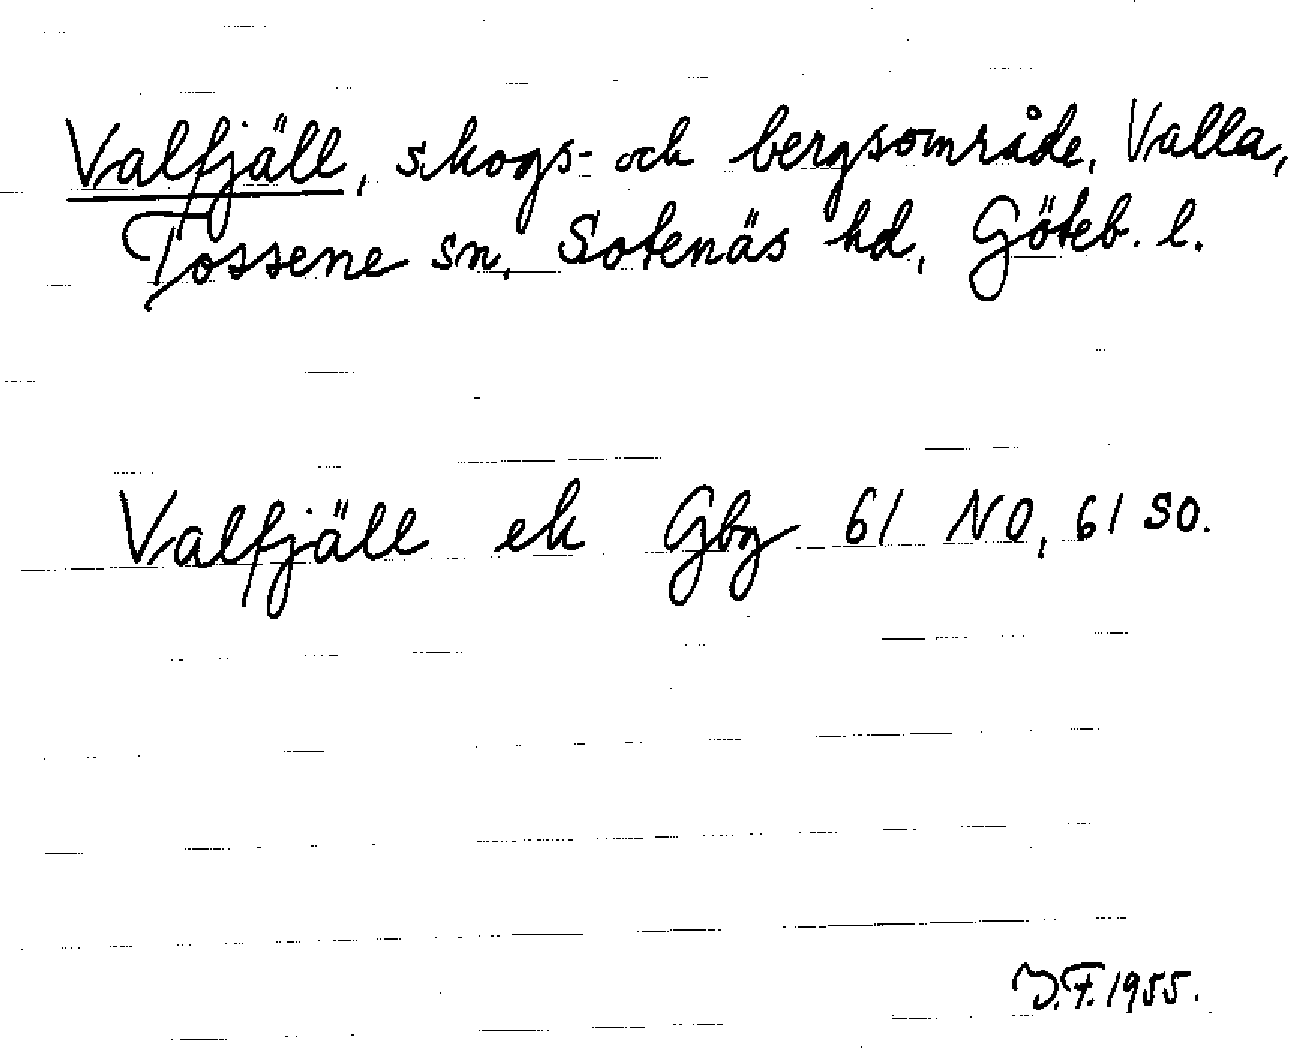 Valfjäll, skogs- och bergsområde, Valla,
Tossene sn, Sotenäs hd, Göteb. l.
Valfjäll ek Gbg 61 NO, 61 SO.
J.F. 1955.